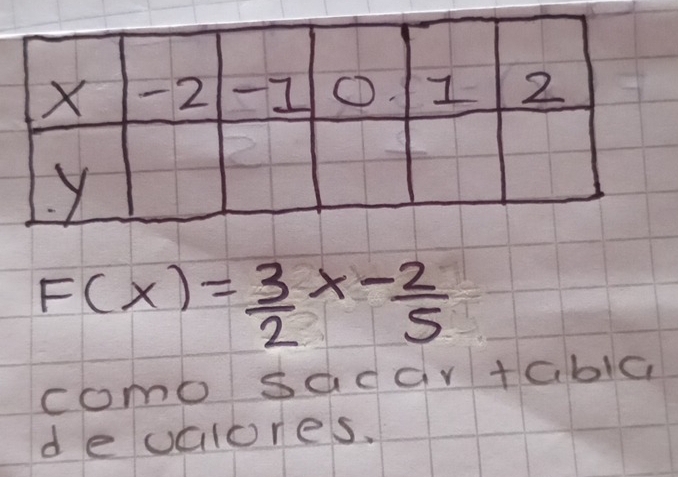 x -2 -1 0 1 2
y
F(x) = 3/2 x - 2/5
como sacar tabla
de valores.